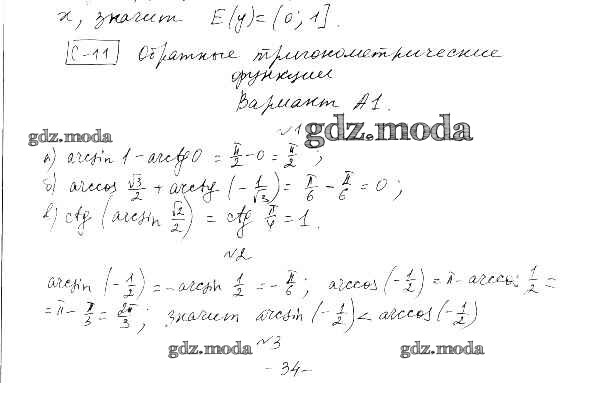 x, значит E(y)=(0; 1].
С-11 Обратные тригонометрические
функции
Вариант А1.
№1
gdz.moda gdz.moda
а) arcsin 1 - arctg 0 = π/2 - 0 = π/2 ;
б) arccos √3/2 + arctg (-1/√3) = π/6 - π/6 = 0 ;
в) ctg (arcsin √2/2) = ctg π/4 = 1.
№2
arcsin (-1/2) = -arcsin 1/2 = -π/6 ; arccos (-1/2) = π - arccos 1/2 =
= π - π/3 = 2π/3 ; значит arcsin (-1/2) < arccos (-1/2)
№3
gdz.moda gdz.moda
- 34 -